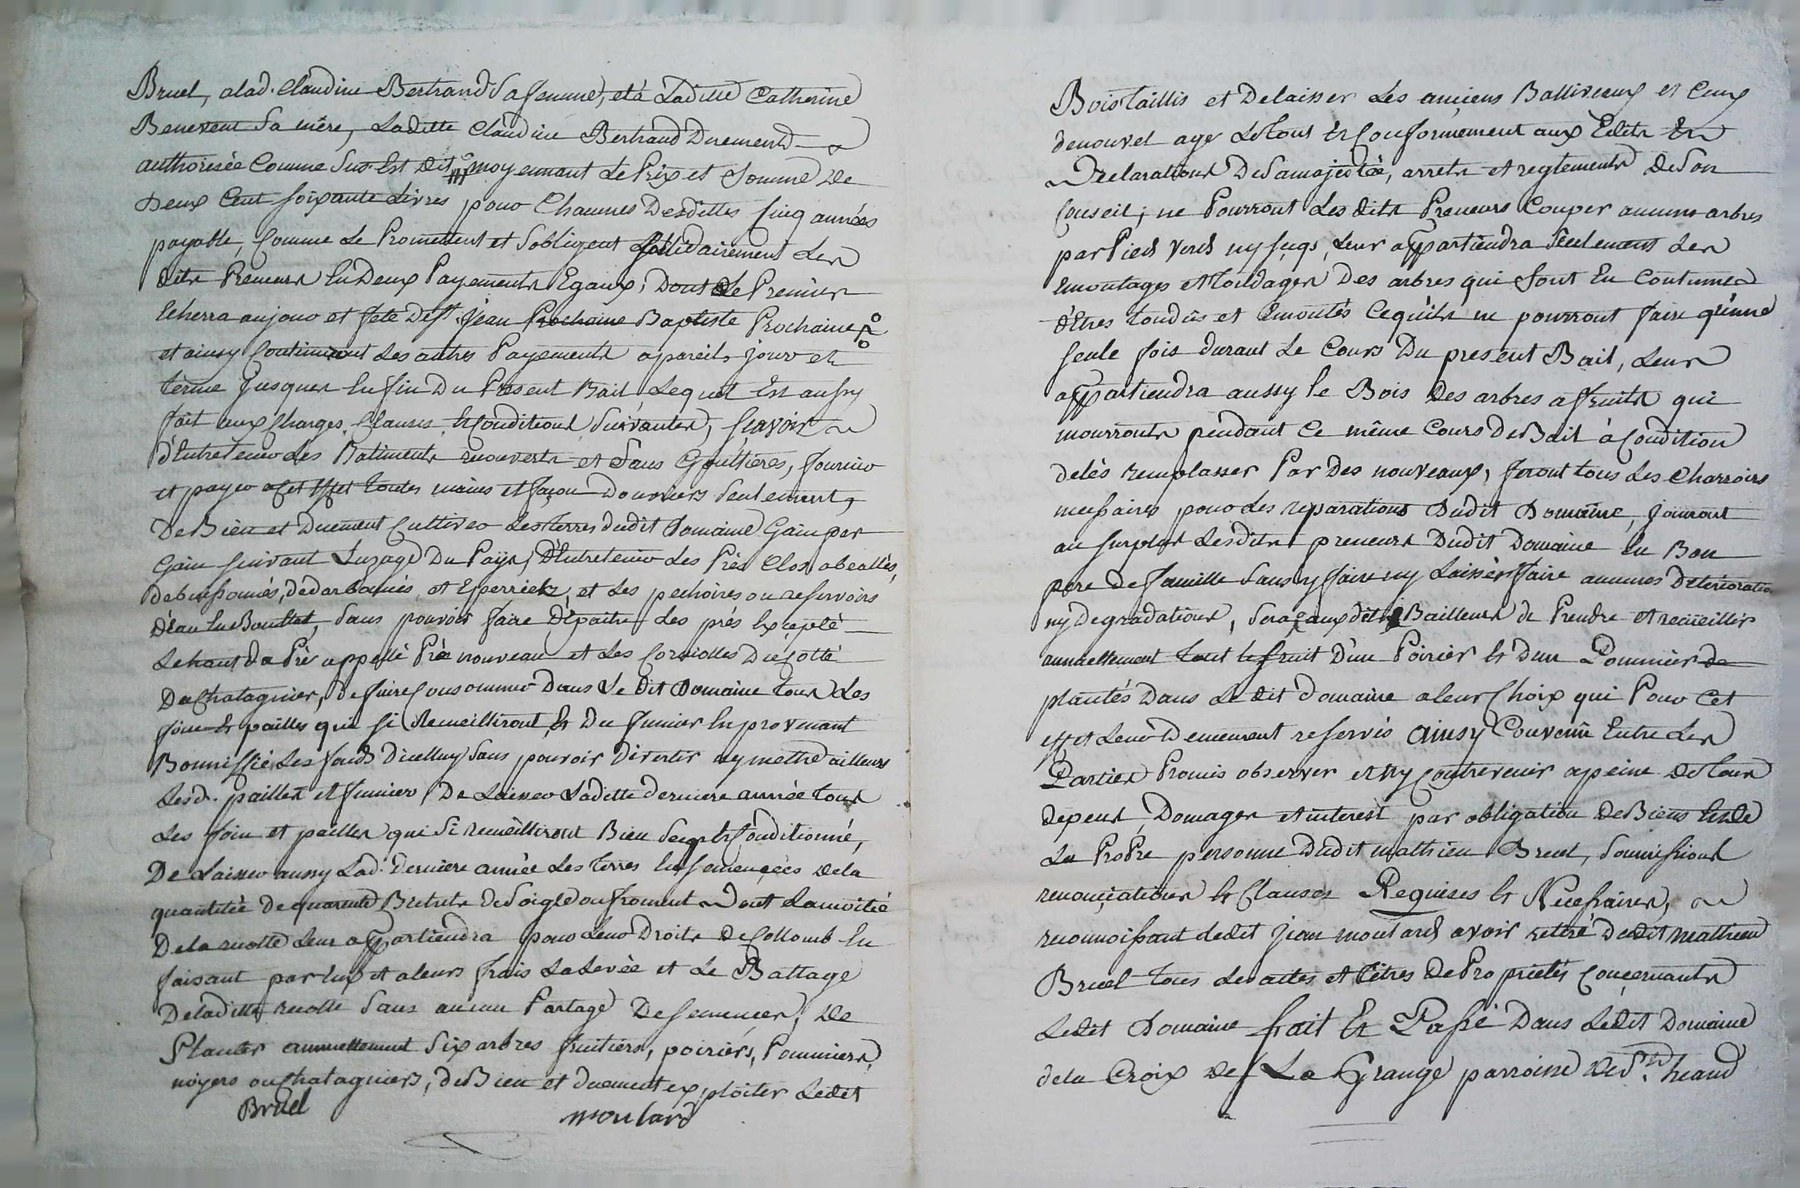 Bruel, alad. Claudine Bertrand Sa femme, et à Laditte Catherine
Benevent Sa mère, Laditte Claudine Bertrand Duement
authorisée Comme Sus Est dit moyennant Le Prix et Somme De
Deux Cent soixante Livres pour Chacunes Desdittes Cinq années
payable, Comme Le Promettent et Sobligent Solidairement Les
dits Preneurs En Deux Payements Egaux, Dont Le Premier
Echerra aujour et fête de St. Jean Prochaine Baptiste Prochaine
et ainsy Continuront Les autres Payements apareils jour et
terme Jusques En fin Du Present Bail Lequel Est aussy
fait aux Charges, Clauses, & Conditions Suivantes, Sçavoir
d'Entretenir Les Batiments recouverts et Sans Gouttières, fournir
et payer a cet Effet toutes mains et façon Douvriers Seulement,
De Bien et Duement Cultiver Les terres dudit Domaine Gain per
Gain suivant L'uzage Du Pays, D'Entretenir Les Prés Clos, abealles,
Debuissonés, dedarbounés, et Eperriés, et Les pechoires ou reservoirs
D'éau En Bon Etat, Sans pouvoir faire Dépaitre Les prés Excepté
Le haut du Prè appellè Prè nouveau et Les Corniolles Du Cotté
Du Chatagnier, De faire Consommer Dans Le dit Domaine tous Les
foins & pailles qui Si Recueilliront, & Du fumier En provenant
Bonniffier Les fonds D'icelluy Sans pouvoir Divertir ny mettre ailleurs
Lesd. pailles et fumier, De Laisser Laditte derniere année tous
Les foin et pailles qui Si recueilliront Bien Secqs & Conditionné,
De Laisser aussy Lad. derniere année Les terres Ensemencées de la
quantitée De quarante Bichets De Soigle ou froment Dont La moitié
De la recolte Leur appartiendra pour Leur Droits De Collomb En
faisant par Eux et a leurs frais La Levée et Le Battage
De laditte recolte Sans aucun Partage De semences, De
Planter annuellement Six arbres fruitiers, poiriers, Pommiers,
noyers ou Chatagniers, De Bien et Duement exploiter Ledit
Bruel moulard
Bois taillis et Delaisser Les anciens Balliveaux et Ceux
de nouvel age Le tout & Conformement aux Edits &
Declarations De Sa majestée, arrets et reglements de Son
Conseil; ne Pourront Les dits Preneurs Couper aucuns arbres
par Pieds verds ny secqs, Leur appartiendra Seulement Les
Emontages et tondages Des arbres qui Sont En Coutume
d'êtres tondus et Emontés Ce qu'ils ne pourront faire qu'une
seule fois durant Le Cours Du present Bail, Leur
appartiendra aussy le Bois Des arbres a fruits qui
mourronts pendant Ce même Cours De Bail à Condition
de lés remplasser Par Des nouveaux, feront tous Les Charroirs
necessaires pour Les reparations Dudit Domaine, jouiront
au surplus Lesdits preneurs Dudit Domaine En Bon
pere De famille Sans y faire ny Laisser faire aucunes Deterioration
ny Degradations, Sera Bailleur de Prendre et recueillir
annuellement tout le fruit D'un Poirier & d'un Pommier
plantés Dans Le dit domaine a leur Choix qui Pour Cet
effet Leur Demeurent reservés Ainsy Convenu Entre Les
Parties Promis observer et n'y Contrevenir a peine De tous
depens, Domages et interest par obligation De Biens & de
La Propre personne Dudit mathieu Bruel, Soumissions
renonciations & Clauses Requises & Necessaires,
reconnoissant Ledit jean moulard avoir retiré Dudit mathieu
Bruel tous Les actes et titres De Proprietés Concernants
Ledit Domaine fait & Passé Dans Ledit Domaine
de la Croix de La Grange parroisse De St. heand